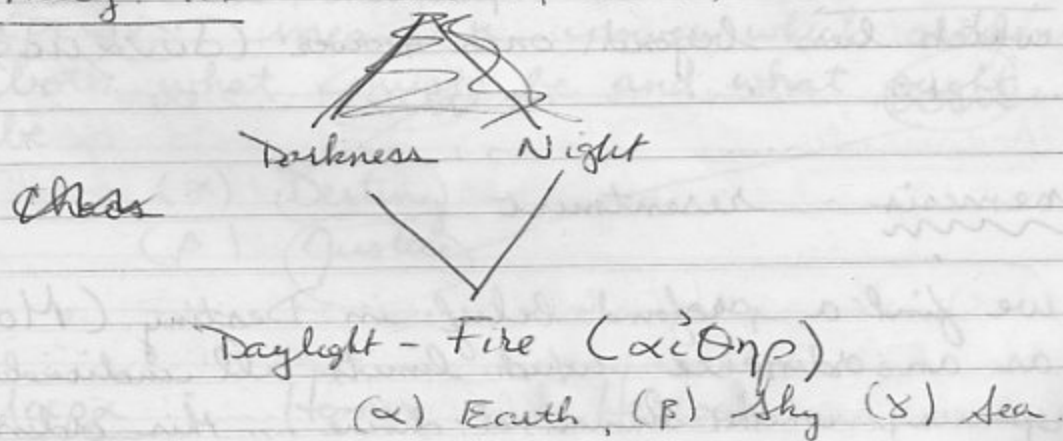 Darkness Night
Chaos
Daylight - Fire (αἰθηρ)
(α) Earth, (β) Sky (γ) Sea